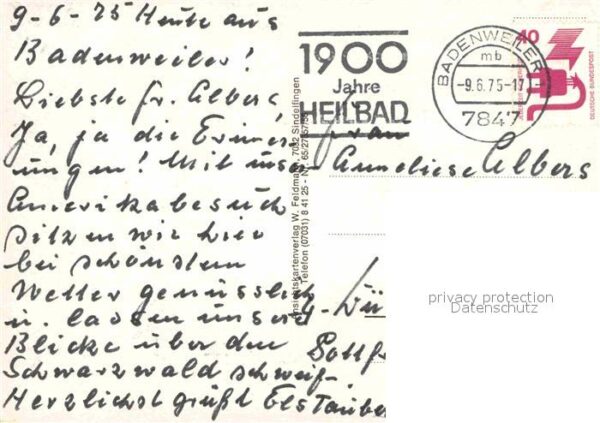 9-6-75 Heute aus
Badenweiler!
Liebste Fr. Albers,
Ja, ja die Erinner
ungen! Mit uns.
Amerikabesuch
sitzen wir hier
bei schönstem
Wetter genüsslich
u. lassen unsere
Blicke über den
Schwarzwald schweif-
Herzlichst grüßt Els Tauber
Ansichtskartenverlag W. Feldmann, 7032 Sindelfingen
Telefon (07031) 8 41 25
1900
Jahre
HEILBAD
BADENWEILER
mb
-9.6.75-17
7847
40
DEUTSCHE BUNDESPOST
Frau
Anneliese Albers
privacy protection
Datenschutz
Gottfr